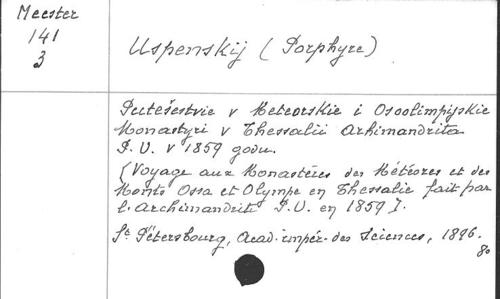 Meester
141
3
Uspenskij (Porphyre)
Putešestvie v Meteorskie i Osoolimpijskie
Monastyri v Thessalii Arhimandrita
P. U. v 1859 godu.
[Voyage aux Monastères des Météores et des
Monts Ossa et Olympe en Thessalie fait par
l'Archimandrite P.U. en 1859].
St Pétersbourg, Acad. impér. des Sciences, 1896.
80